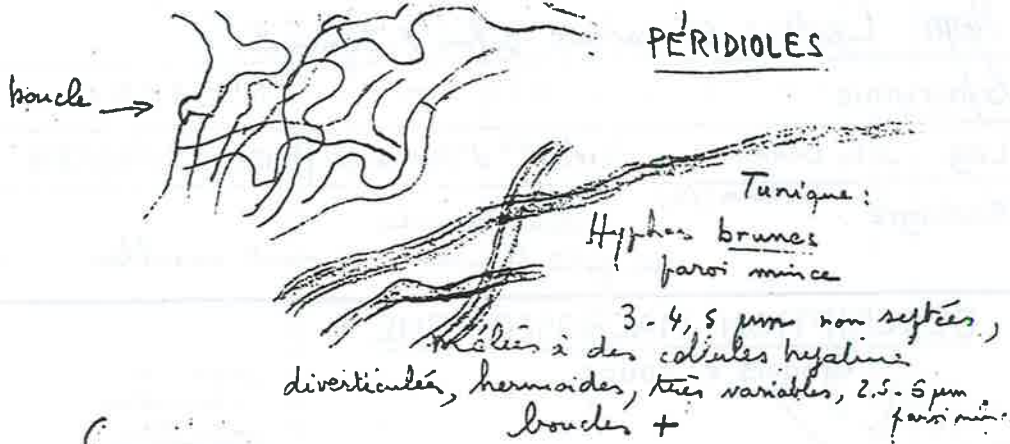 PÉRIDIOLES
boucle
Tunique:
Hyphes brunes
paroi mince
3-4,5 µm non septées,
mêlées à des cellules hyaline
diverticulées, hernioides, très variables, 2.5-5 µm.
paroi min
boucles +